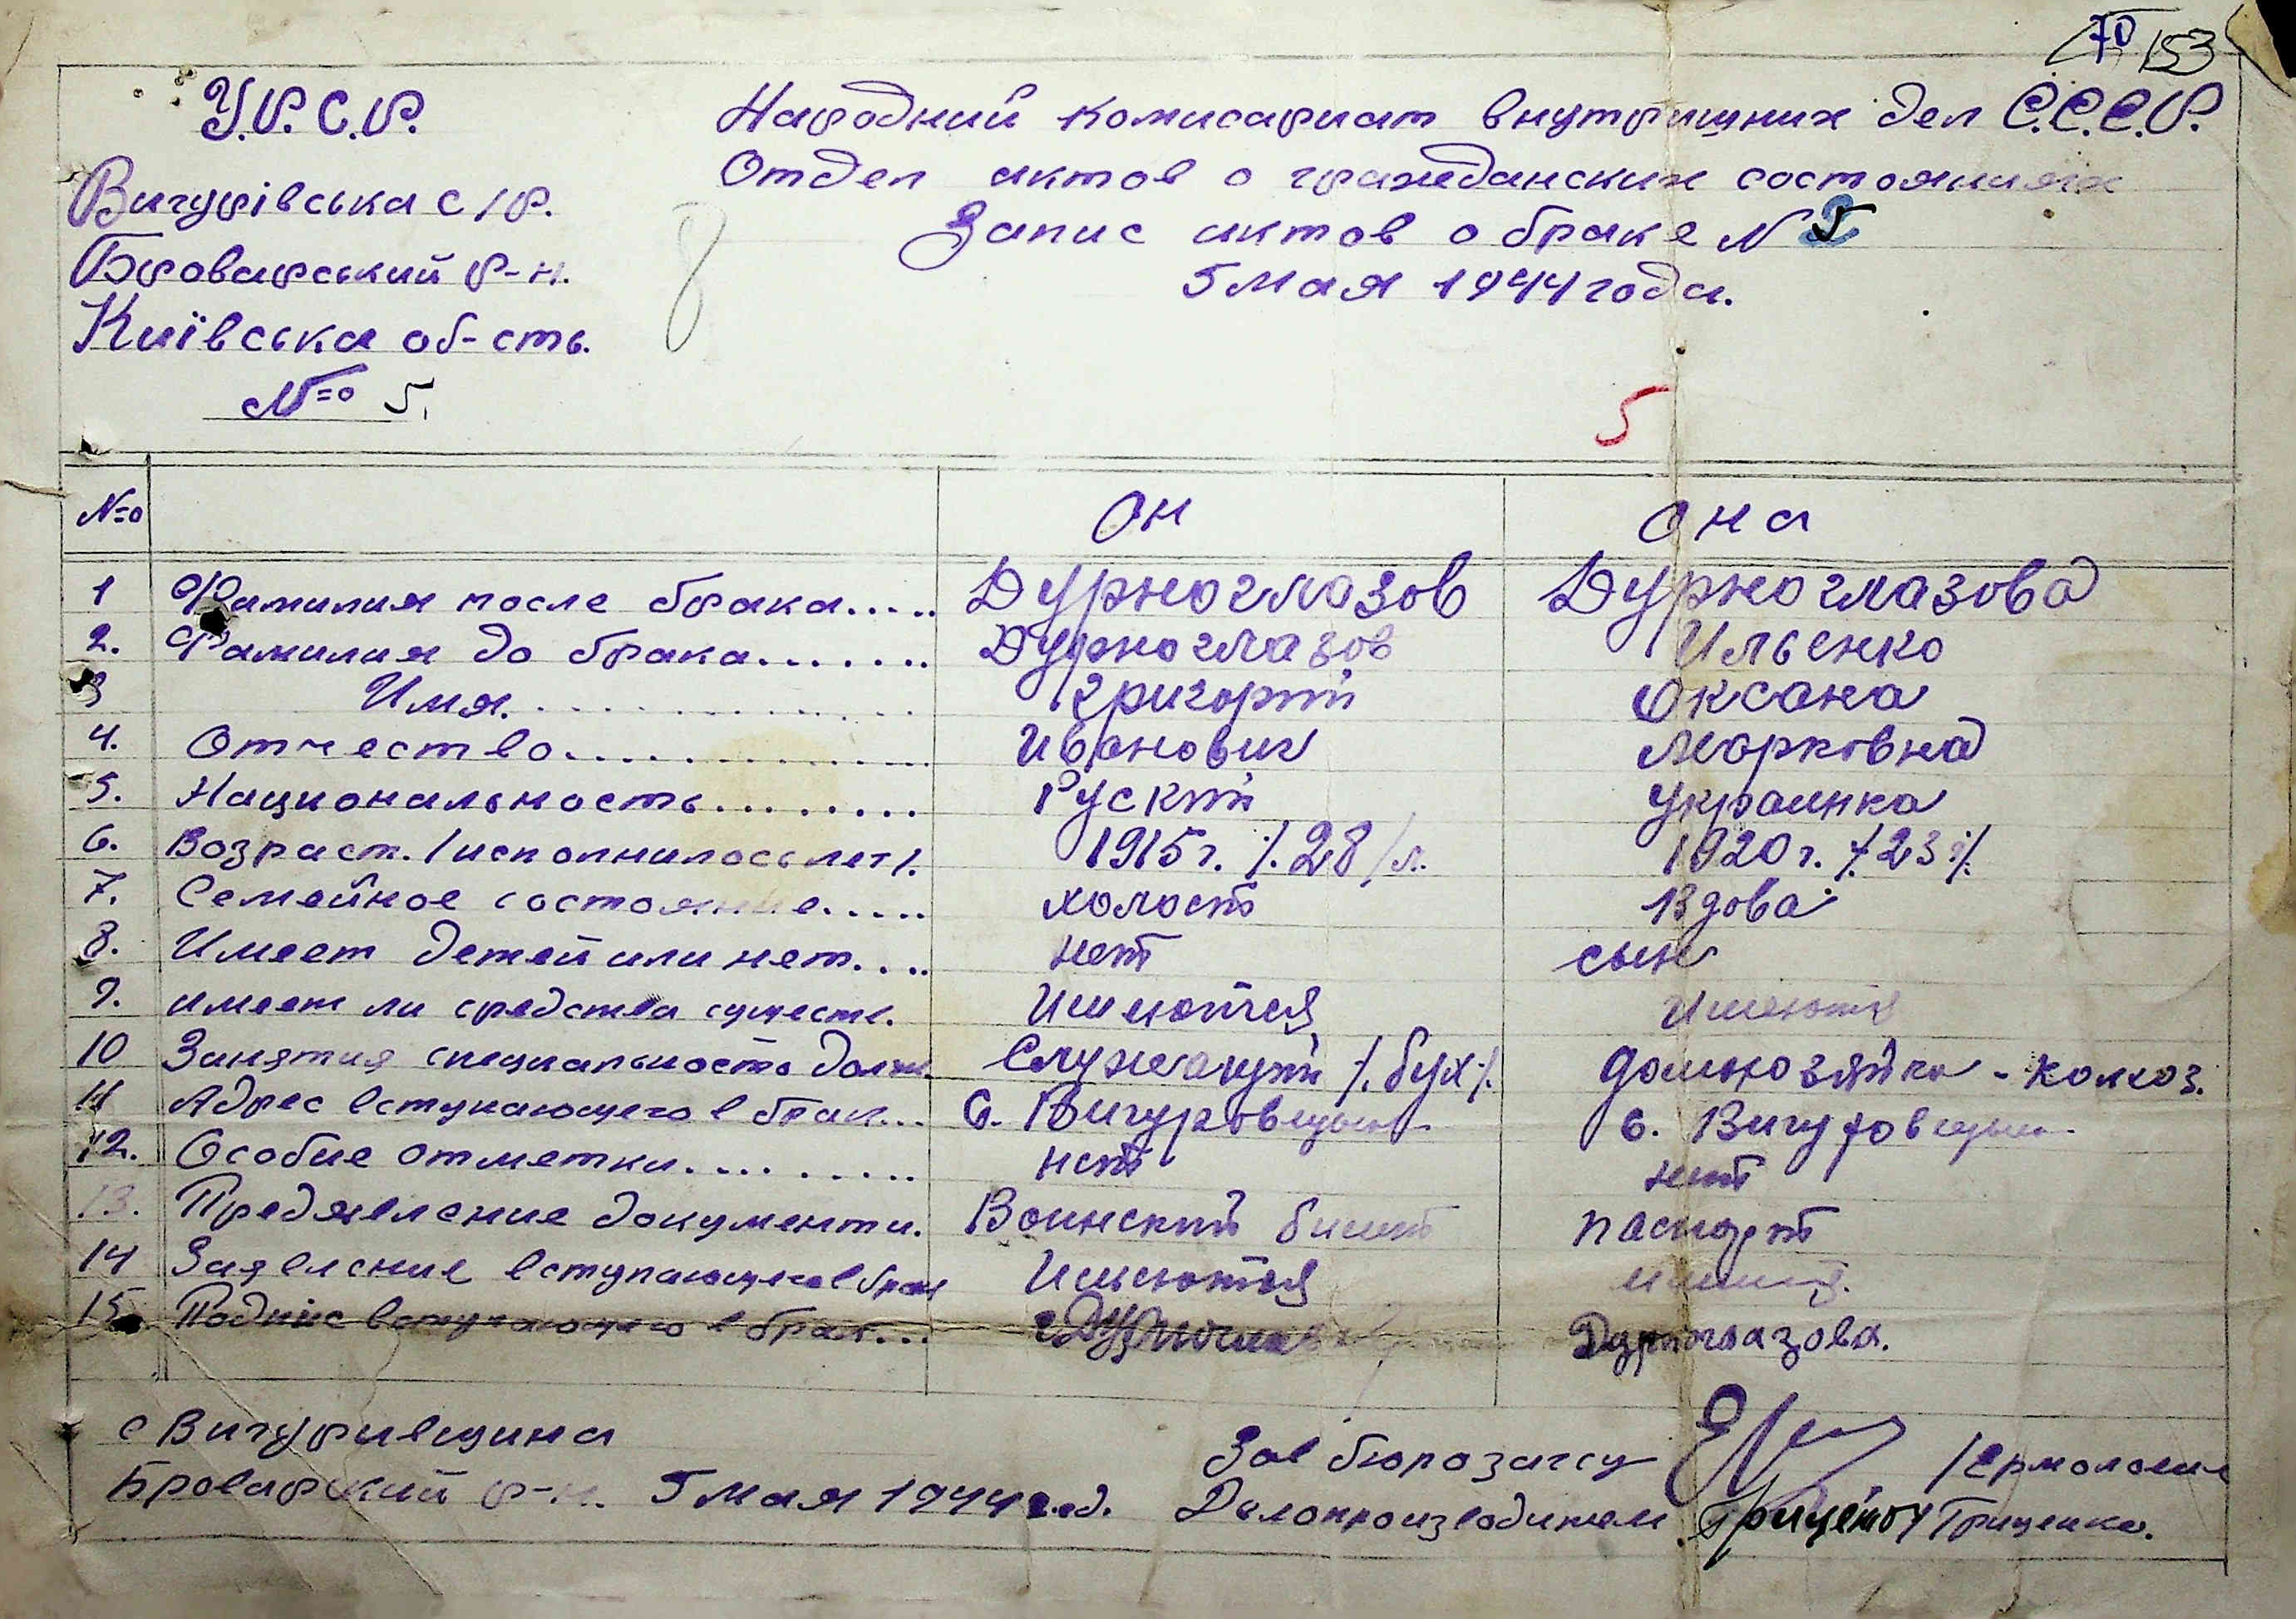 70 153
У.Р.С.Р.
Вигурівська с/р.
Броварський р-н.
Київська об-сть.
№ 5.
8
Народний комисариат внутришних дел С.С.С.Р.
Отдел актов о гражданских состояниях
Запис актов о браке N 5
5 мая 1944 года.
5
№ Он Она
1 Фамилия после брака..... Дурноглазов Дурноглазова
2. Фамилия до брака....... Дурноглазов Ильенко
3 Имя. Григорий Оксана
4. Отчество Иванович Марковна
5. Национальность........ Руский украинка
6. Возраст. /исполнилось лет/. 1915 г. /.28/л. 1920 г. /.23 /.
7. Семейное состояние..... холост вдова
8. Имеет детей или нет.... нет сын
9. имеет ли средства сущест. Имеются Имеются
10 Занятия специальность долж. Служащий /.бух/. домохозяйка - колхоз.
11 Адрес вступающего в брак... с. Вигуровщина с. Вигуровщина
12. Особие отметки......... нет нет
13. Предявление документи. Воинский билет паспорт
14 Заявление вступающего в брак Имеются
15. Подпис вступающего в брак... Дурноглазова.
с Вигуривщина
Броварский р-н. 5 мая 1944 год.
Зав бюро загсу /Ермоленко
Делопроизводитель Гриценко / Гриценко.